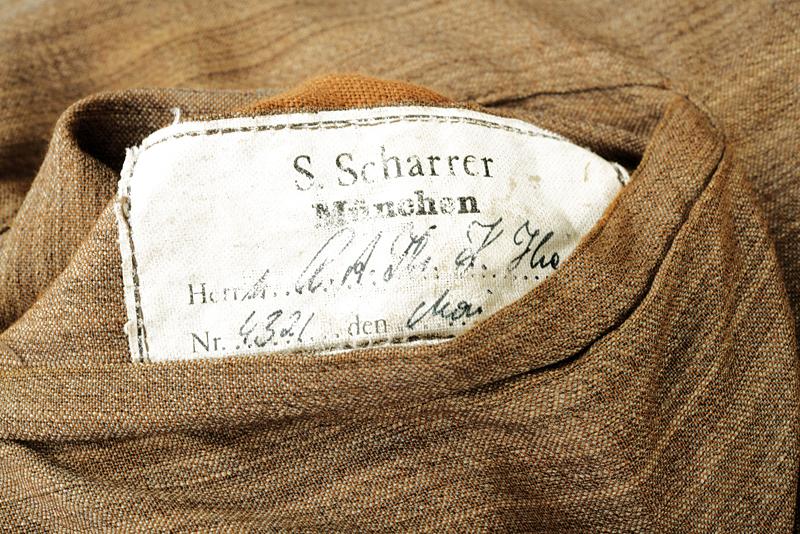 S. Scharrer
München
Herrn
Nr. 4321 den Mai